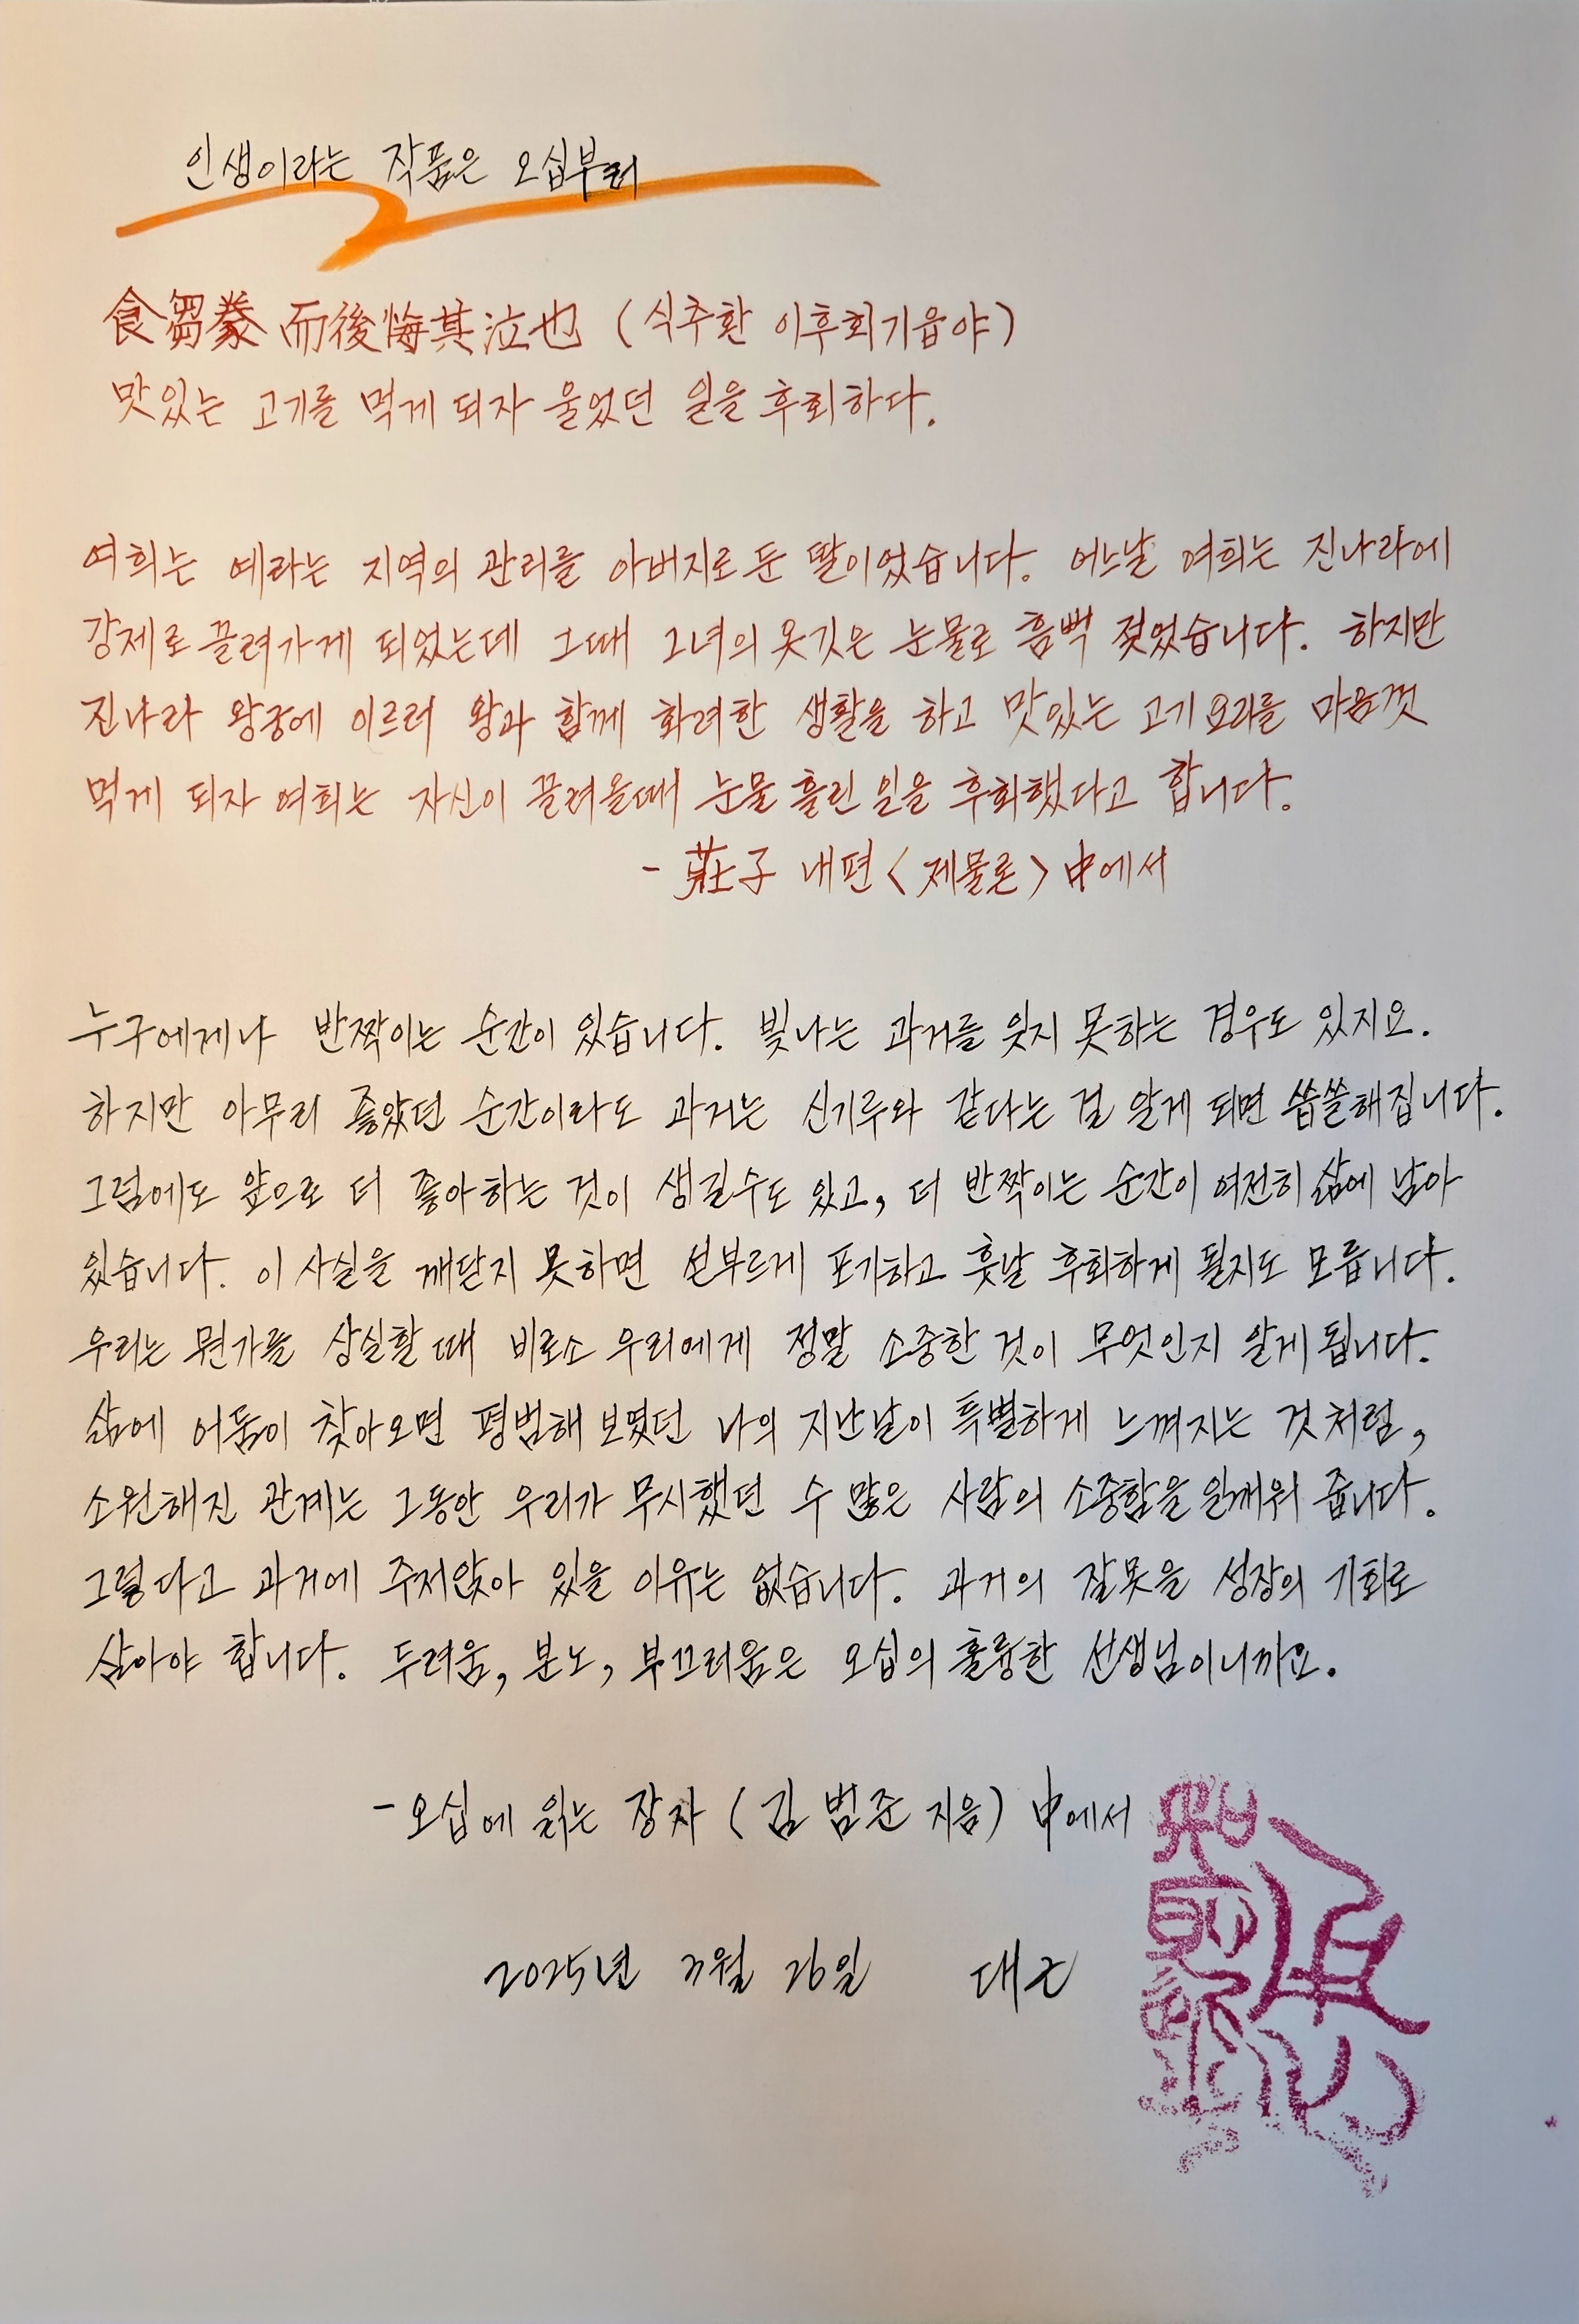 인생이라는 작품은 오십부터
食芻豢 而後悔其泣也 (식추환 이후회기읍야)
맛있는 고기를 먹게 되자 울었던 일을 후회하다.
여희는 예라는 지역의 관리를 아버지로 둔 딸이었습니다. 어느날 여희는 진나라에
강제로 끌려가게 되었는데 그때 그녀의 옷깃은 눈물로 흠뻑 젖었습니다. 하지만
진나라 왕궁에 이르러 왕과 함께 화려한 생활을 하고 맛있는 고기 요리를 마음껏
먹게 되자 여희는 자신이 끌려올때 눈물 흘린 일을 후회했다고 합니다.
- 莊子 내편 〈제물론〉 中에서
누구에게나 반짝이는 순간이 있습니다. 빛나는 과거를 잊지 못하는 경우도 있지요.
하지만 아무리 좋았던 순간이라도 과거는 신기루와 같다는 걸 알게 되면 씁쓸해집니다.
그럼에도 앞으로 더 좋아하는 것이 생길수도 있고, 더 반짝이는 순간이 여전히 삶에 남아
있습니다. 이 사실을 깨닫지 못하면 섣부르게 포기하고 훗날 후회하게 될지도 모릅니다.
우리는 뭔가를 상실할 때 비로소 우리에게 정말 소중한 것이 무엇인지 알게 됩니다.
삶에 어둠이 찾아오면 평범해 보였던 나의 지난날이 특별하게 느껴지는 것 처럼,
소원해진 관계는 그동안 우리가 무시했던 수 많은 사람의 소중함을 일깨워 줍니다.
그렇다고 과거에 주저앉아 있을 이유는 없습니다. 과거의 잘못을 성장의 기회로
삼아야 합니다. 두려움, 분노, 부끄러움은 오십의 훌륭한 선생님이니까요.
- 오십에 읽는 장자 (김범준 지음) 中에서
2025년 3월 26일 대근